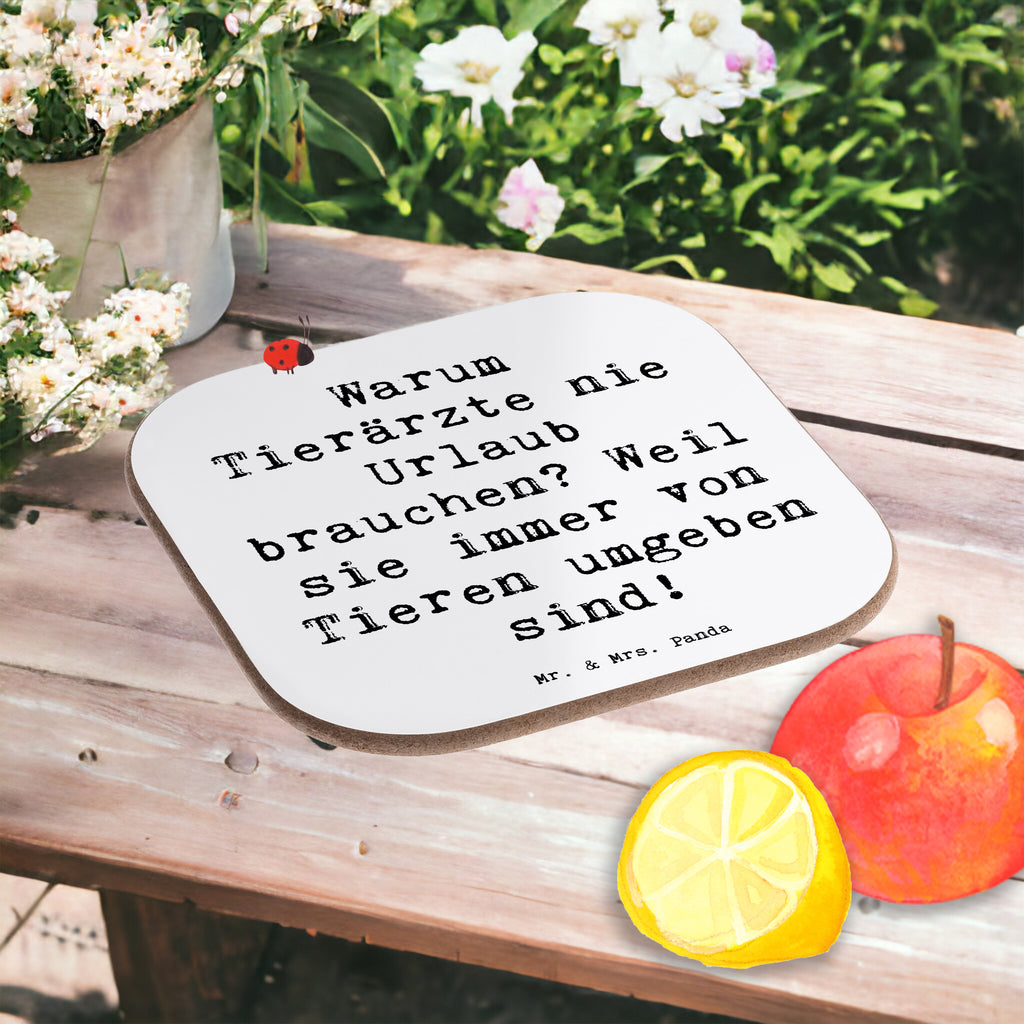 Warum
Tierärzte nie
Urlaub
brauchen? Weil
sie immer von
Tieren umgeben
sind!
Mr. & Mrs. Panda